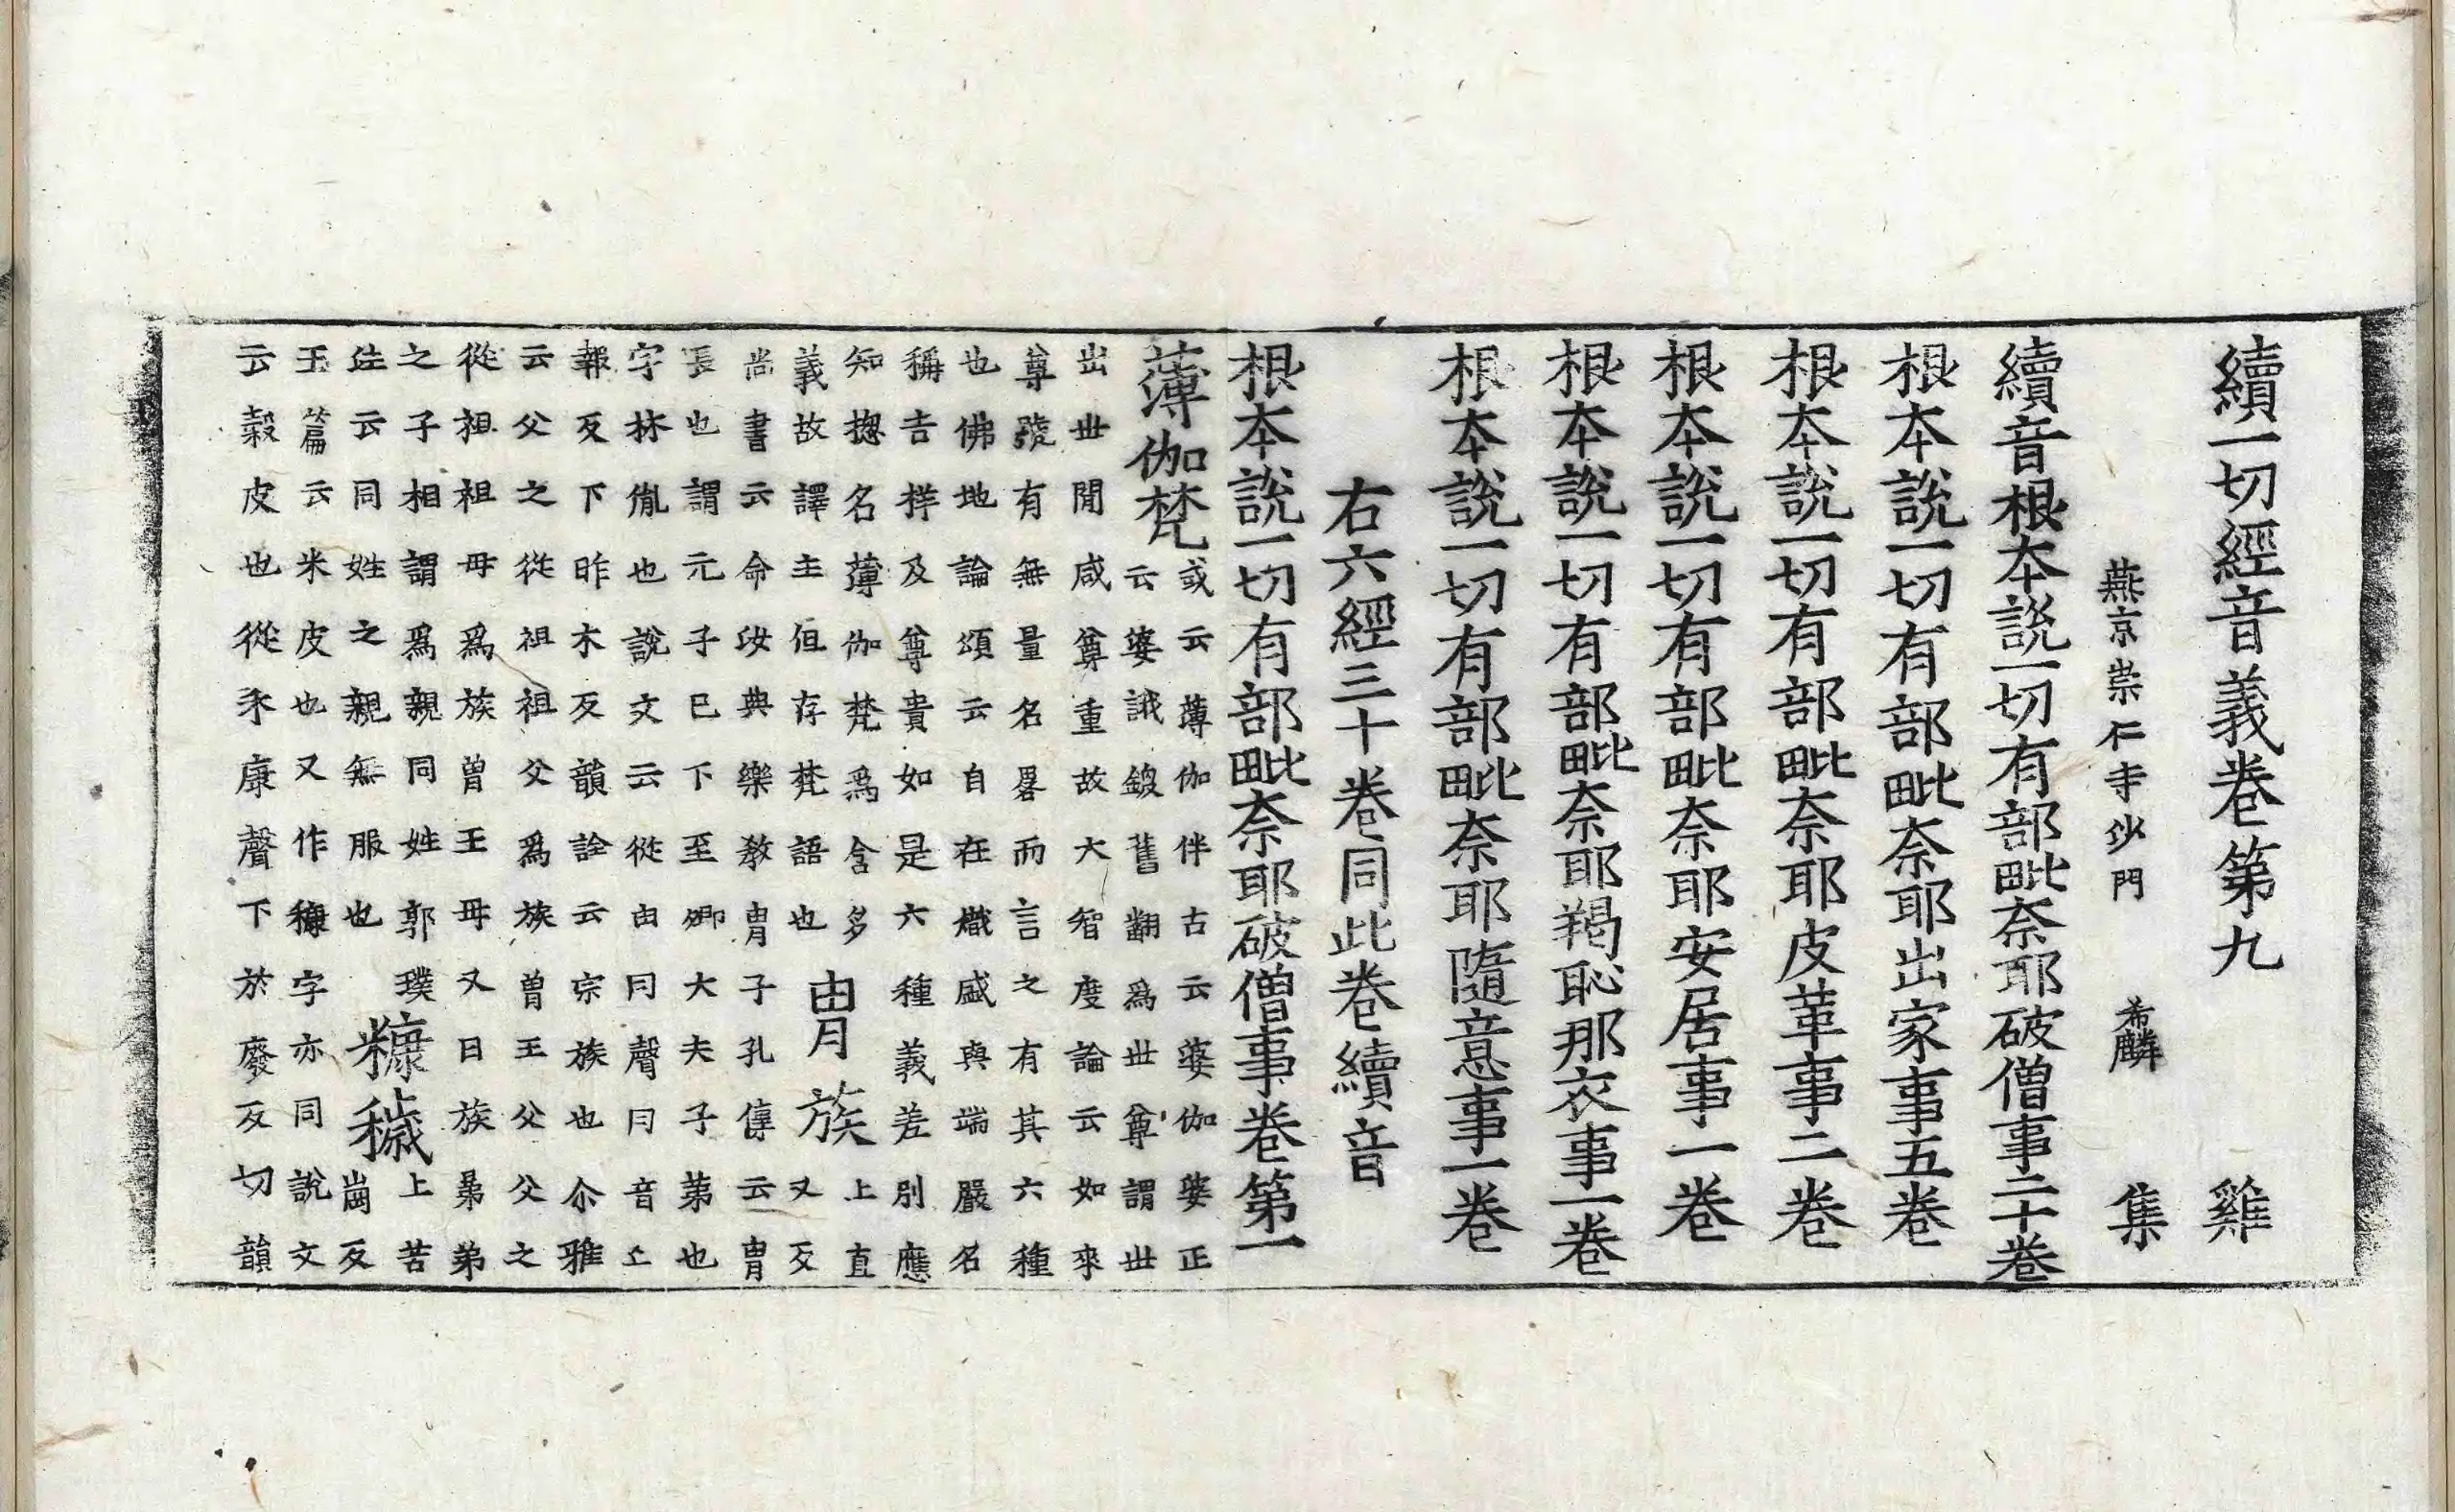 續一切經音義卷第九 雞
燕京崇仁寺沙門 希麟 集
續音根本說一切有部毗奈耶破僧事二十卷
根本說一切有部毗奈耶出家事五卷
根本說一切有部毗奈耶皮革事二卷
根本說一切有部毗奈耶安居事一卷
根本說一切有部毗奈耶羯恥那衣事一卷
根本說一切有部毗奈耶隨意事一卷
右六經三十卷同此卷續音
根本說一切有部毗奈耶破僧事卷第一
薄伽梵 或云薄伽伴古云婆伽婆正
云婆誐鍐舊翻爲世尊謂世
出世閒咸尊重故大智度論云如來
尊號有無量名畧而言之有其六種
也佛地論頌云自在熾盛與端嚴名
稱吉祥及尊貴如是六種義差別應
知揔名薄伽梵爲含多
義故譯主但存梵語也 胄族 上直
又反
尚書云命汝典樂教胄子孔傳云胄
長也謂元子已下至卿大夫子弟也
字林胤也說文云從由同聲同音上
報反下昨木反韻詮云宗族也尒雅
云父之從祖祖父爲族曾王父父之
從祖祖母爲族曾王母又曰族晜弟
之子相謂爲親同姓郭璞
注云同姓之親無服也 糠穢 上苦
崗反
玉篇云米皮也又作穅字亦同說文
云穀皮也從禾康聲下於廢反切韻